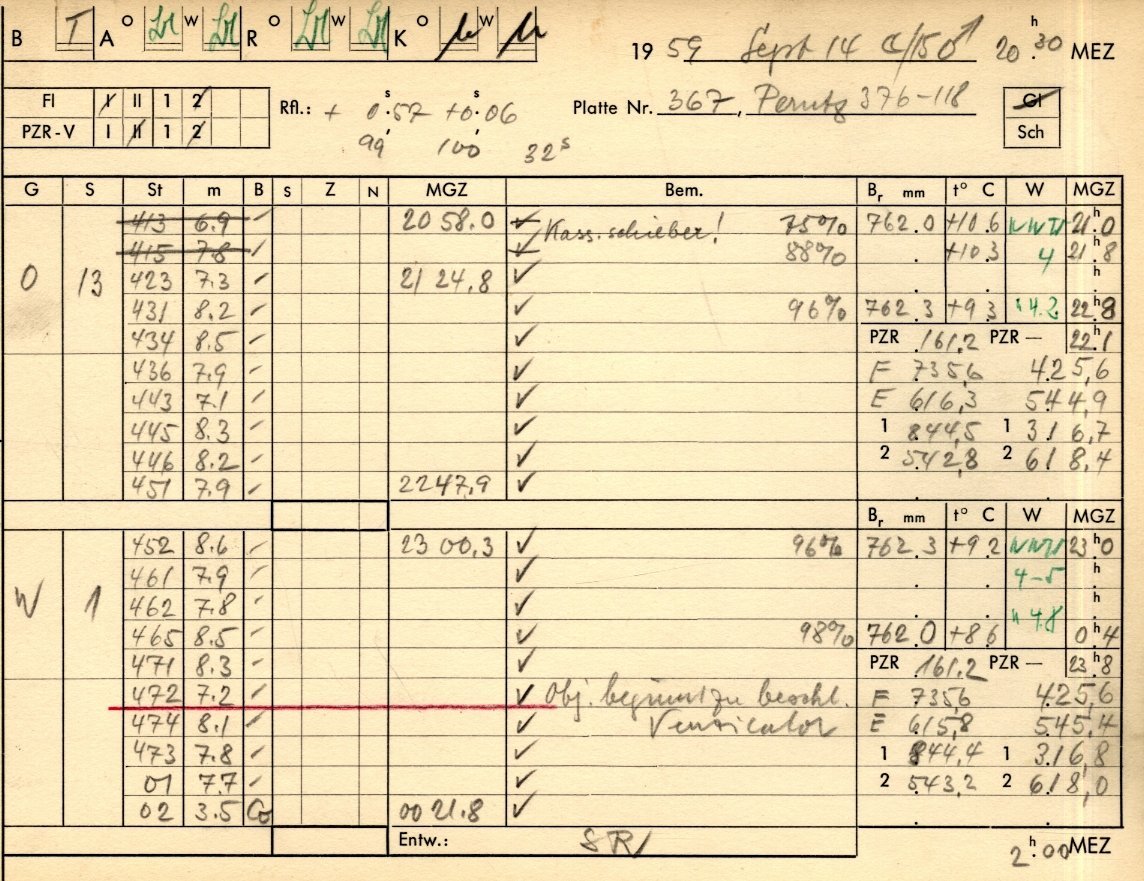 B T A O W R O W K O W 19 59 Sept 14 20 h 30 MEZ
Fl I II 1 2 Rfl.: + 0 s .57 +0 s .06 Platte Nr. 367, Perutz 376-118 Gl
PZR-V I II 1 2 99' 100' 32 s Sch
G S St m B S Z N MGZ Bem. Br mm t° C W MGZ
O 13 413 6.9 20 58.0 ✓ Kass.schieber! 75% 762.0 +10.6 NNW 21 h .0
415 7.8 ✓ 88% +10.3 4 21 h .8
423 7.3 21 24.8 ✓ h
431 8.2 ✓ 96% 762.3 +9.3 " 4.2 22 h .8
434 8.5 ✓ PZR 161.2 PZR — 22 h .1
436 7.9 ✓ F 735,6 425,6
443 7.1 ✓ E 616,3 544,9
445 8.3 ✓ 1 844,5 1 316,7
446 8.2 ✓ 2 542,8 2 618,4
451 7.9 22 47,9 ✓
Br mm t° C W MGZ
W 1 452 8.6 23 00,3 ✓ 96% 762.3 +9.2 NNW 23 h 0
461 7.9 ✓ 4-5 h
462 7.8 ✓ " 4.8 h
465 8.5 ✓ 98% 762.0 +8.6 0 h 4
471 8.3 ✓ PZR 161.2 PZR — 23 h .8
472 7.2 ✓ Obj. beginnt zu beschl. F 735,6 425,6
474 8.1 ✓ Ventilator E 615,8 545,4
473 7.8 ✓ 1 844,4 1 316,8
01 7.7 ✓ 2 543,2 2 618,0
02 3.5 Co 00 21.8 ✓
Entw.: SR/ 2 h .00 MEZ